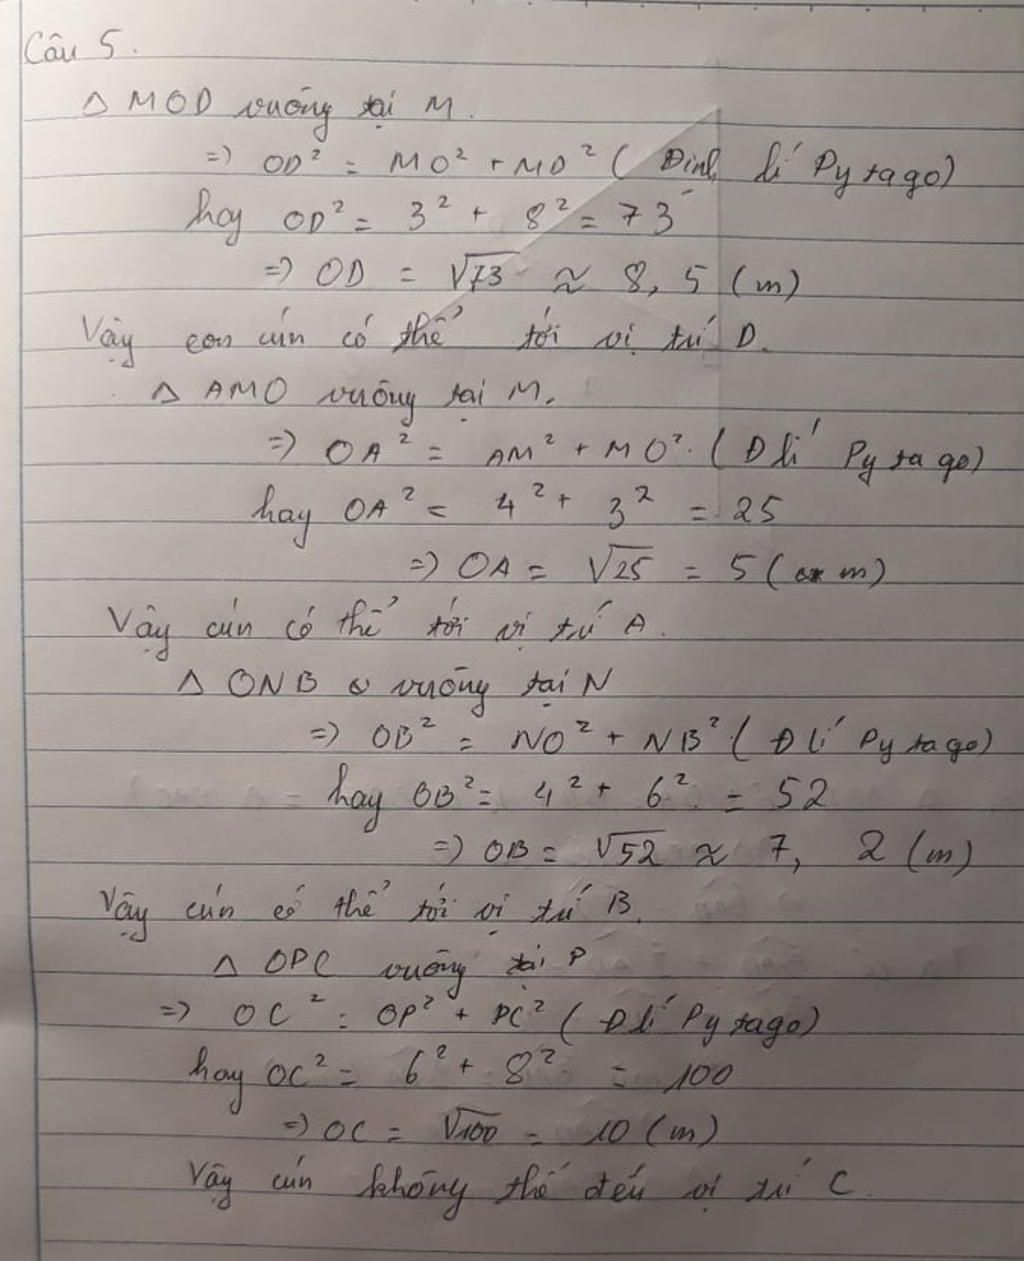 Câu 5.
Δ MOD vuông tại M.
=> OD² = MO² + MD² ( Định lí Pytago)
hay OD² = 3² + 8² = 73
=> OD = √73 ≈ 8,5 (m)
Vậy con cún có thể tới vị trí D.
Δ AMO vuông tại M.
=> OA² = AM² + MO². ( Đ lí Pytago)
hay OA² = 4² + 3² = 25
=> OA = √25 = 5 ( m)
Vậy cún có thể tới vị trí A.
Δ ONB vuông tại N
=> OB² = NO² + NB² ( Đ lí Pytago)
hay OB² = 4² + 6² = 52
=> OB = √52 ≈ 7, 2 (m)
Vậy cún có thể tới vị trí B.
Δ OPC vuông tại P
=> OC² = OP² + PC² ( Đ lí Pytago)
hay OC² = 6² + 8² = 100
=> OC = √100 = 10 (m)
Vậy cún không thể đến vị trí C.